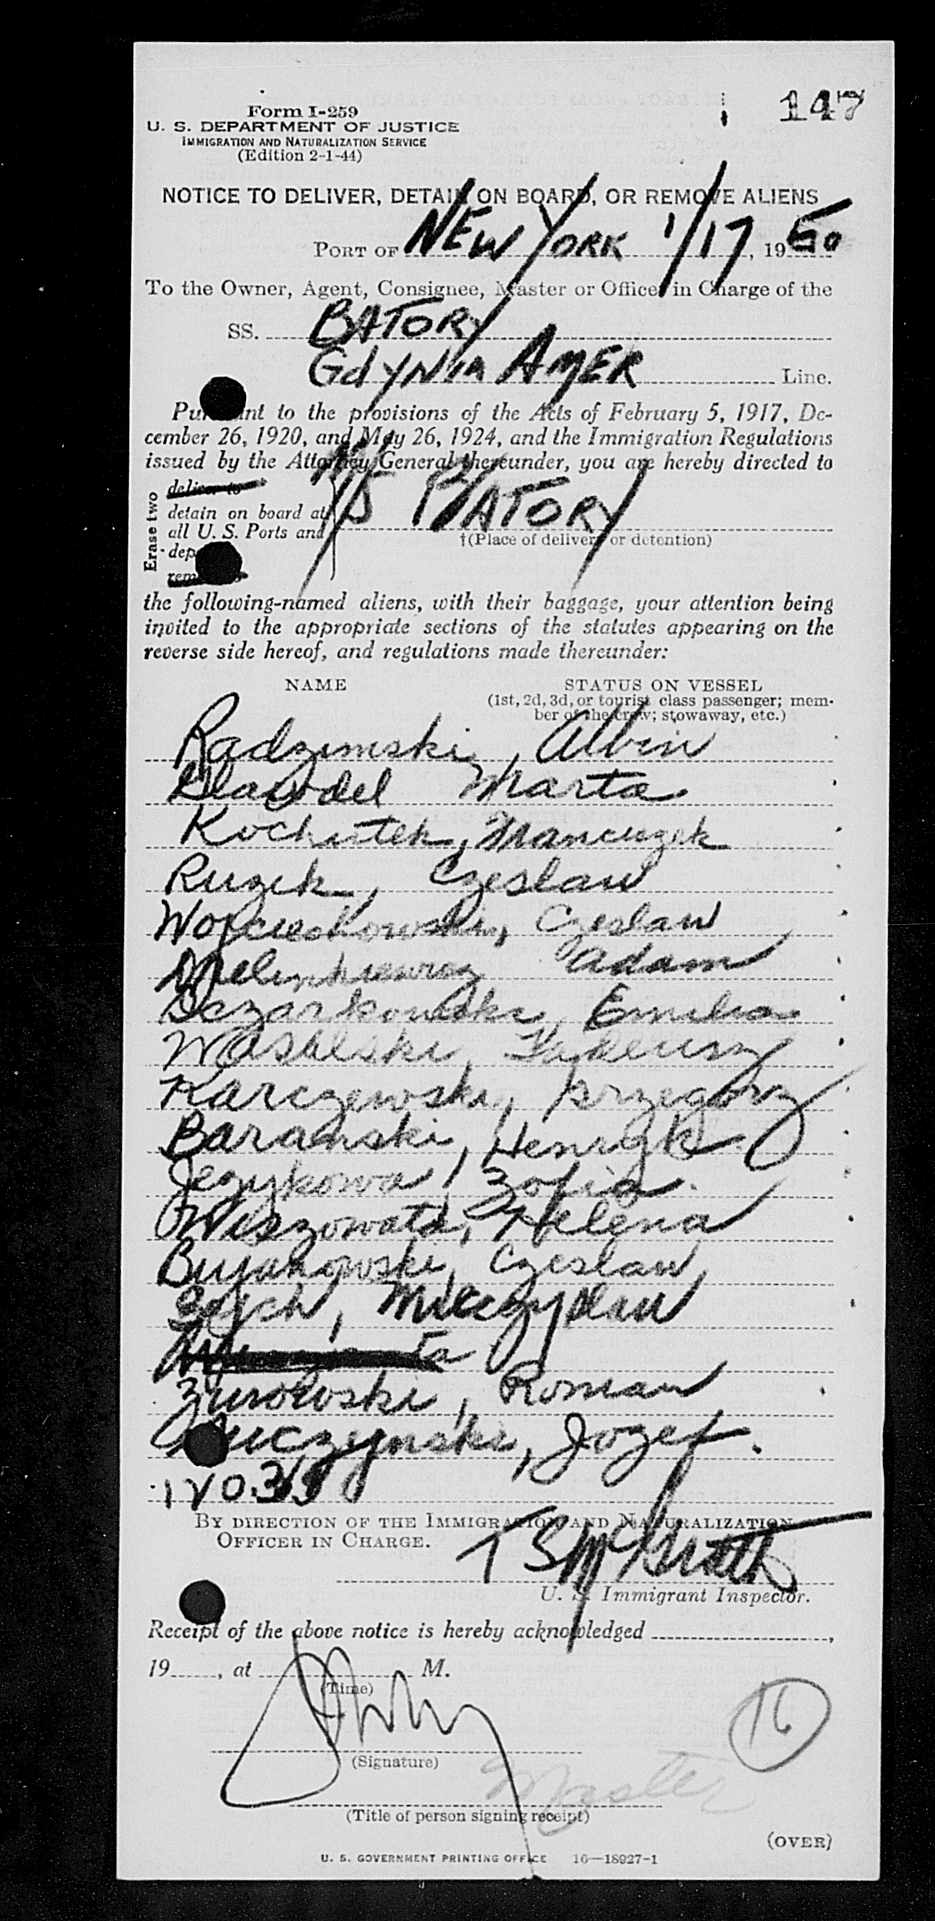 147
Form I-259
U. S. DEPARTMENT OF JUSTICE
IMMIGRATION AND NATURALIZATION SERVICE
(Edition 2-1-44)
NOTICE TO DELIVER, DETAIN ON BOARD, OR REMOVE ALIENS
PORT OF NEW YORK 1/17, 1950
To the Owner, Agent, Consignee, Master or Officer in Charge of the
SS. BATORY
GdYNIA AMER Line.
Pursuant to the provisions of the Acts of February 5, 1917, De-
cember 26, 1920, and May 26, 1924, and the Immigration Regulations
issued by the Attorney General thereunder, you are hereby directed to
Erase two
deliver to
detain on board at
all U. S. Ports and
M/S BATORY
†(Place of delivery or detention)
the following-named aliens, with their baggage, your attention being
invited to the appropriate sections of the statutes appearing on the
reverse side hereof, and regulations made thereunder:
NAME STATUS ON VESSEL
(1st, 2d, 3d, or tourist class passenger; mem-
ber of the crew; stowaway, etc.)
Radzimski, Albin
Marta
Ruzik, Czeslaw
Wojciechowski, Czeslaw
Adam
Emilia
Wasilski, Tadeusz
Karczewski, Grzegorz
Baranski, Henryk
Jezykowa, Zofia
Wiszowata, Helena
Bujanowski, Czeslaw
Zurowski, Roman
Jozef
BY DIRECTION OF THE IMMIGRATION AND NATURALIZATION
OFFICER IN CHARGE.
T S McGrath
U. S. Immigrant Inspector.
Receipt of the above notice is hereby acknowledged ,
19 , at M.
(Time)
16
(Signature)
Master
(Title of person signing receipt)
(OVER)
U. S. GOVERNMENT PRINTING OFFICE 16—18927-1